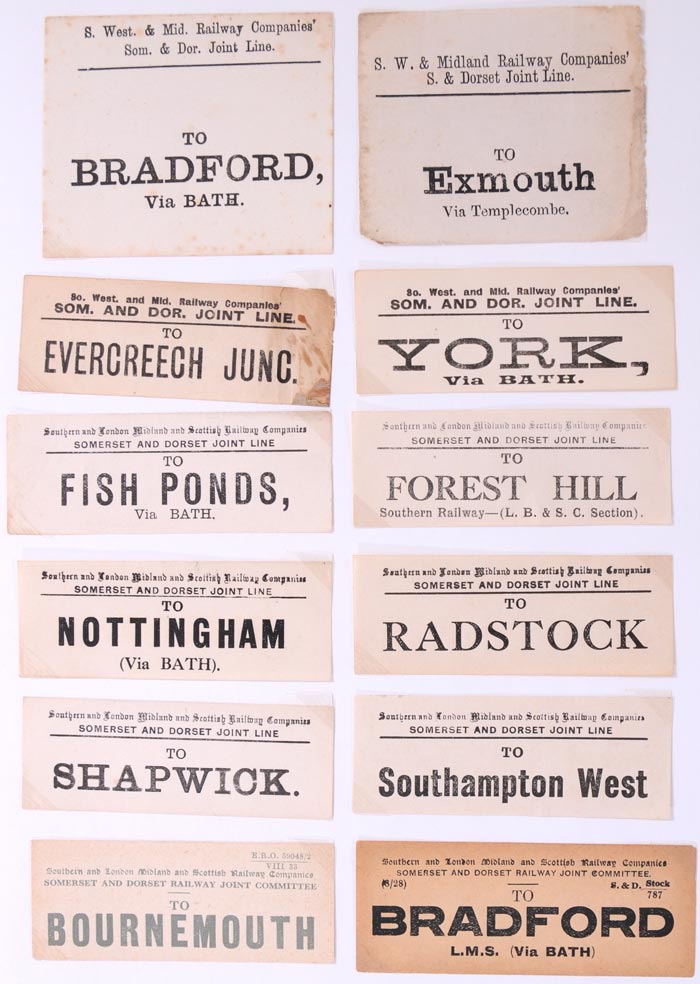 S. West. & Mid. Railway Companies'
Som. & Dor. Joint Line.
TO
BRADFORD,
Via BATH.
S. W. & Midland Railway Companies'
S. & Dorset Joint Line.
TO
Exmouth
Via Templecombe.
So. West. and Mid. Railway Companies'
SOM. AND DOR. JOINT LINE.
TO
EVERCREECH JUNC.
So. West. and Mid. Railway Companies'
SOM. AND DOR. JOINT LINE.
TO
YORK,
Via BATH.
Southern and London Midland and Scottish Railway Companies
SOMERSET AND DORSET JOINT LINE
TO
FISH PONDS,
Via BATH.
Southern and London Midland and Scottish Railway Companies
SOMERSET AND DORSET JOINT LINE
TO
FOREST HILL
Southern Railway—(L. B. & S. C. Section).
Southern and London Midland and Scottish Railway Companies
SOMERSET AND DORSET JOINT LINE
TO
NOTTINGHAM
(Via BATH).
Southern and London Midland and Scottish Railway Companies
SOMERSET AND DORSET JOINT LINE
TO
RADSTOCK
Southern and London Midland and Scottish Railway Companies
SOMERSET AND DORSET JOINT LINE
TO
SHAPWICK.
Southern and London Midland and Scottish Railway Companies
SOMERSET AND DORSET JOINT LINE
TO
Southampton West
E.R.O. 59048/2
VIII 35
Southern and London Midland and Scottish Railway Companies
SOMERSET AND DORSET RAILWAY JOINT COMMITTEE
TO
BOURNEMOUTH
Southern and London Midland and Scottish Railway Companies
SOMERSET AND DORSET RAILWAY JOINT COMMITTEE.
(8/28)
S. & D. Stock
787
TO
BRADFORD
L.M.S. (Via BATH)